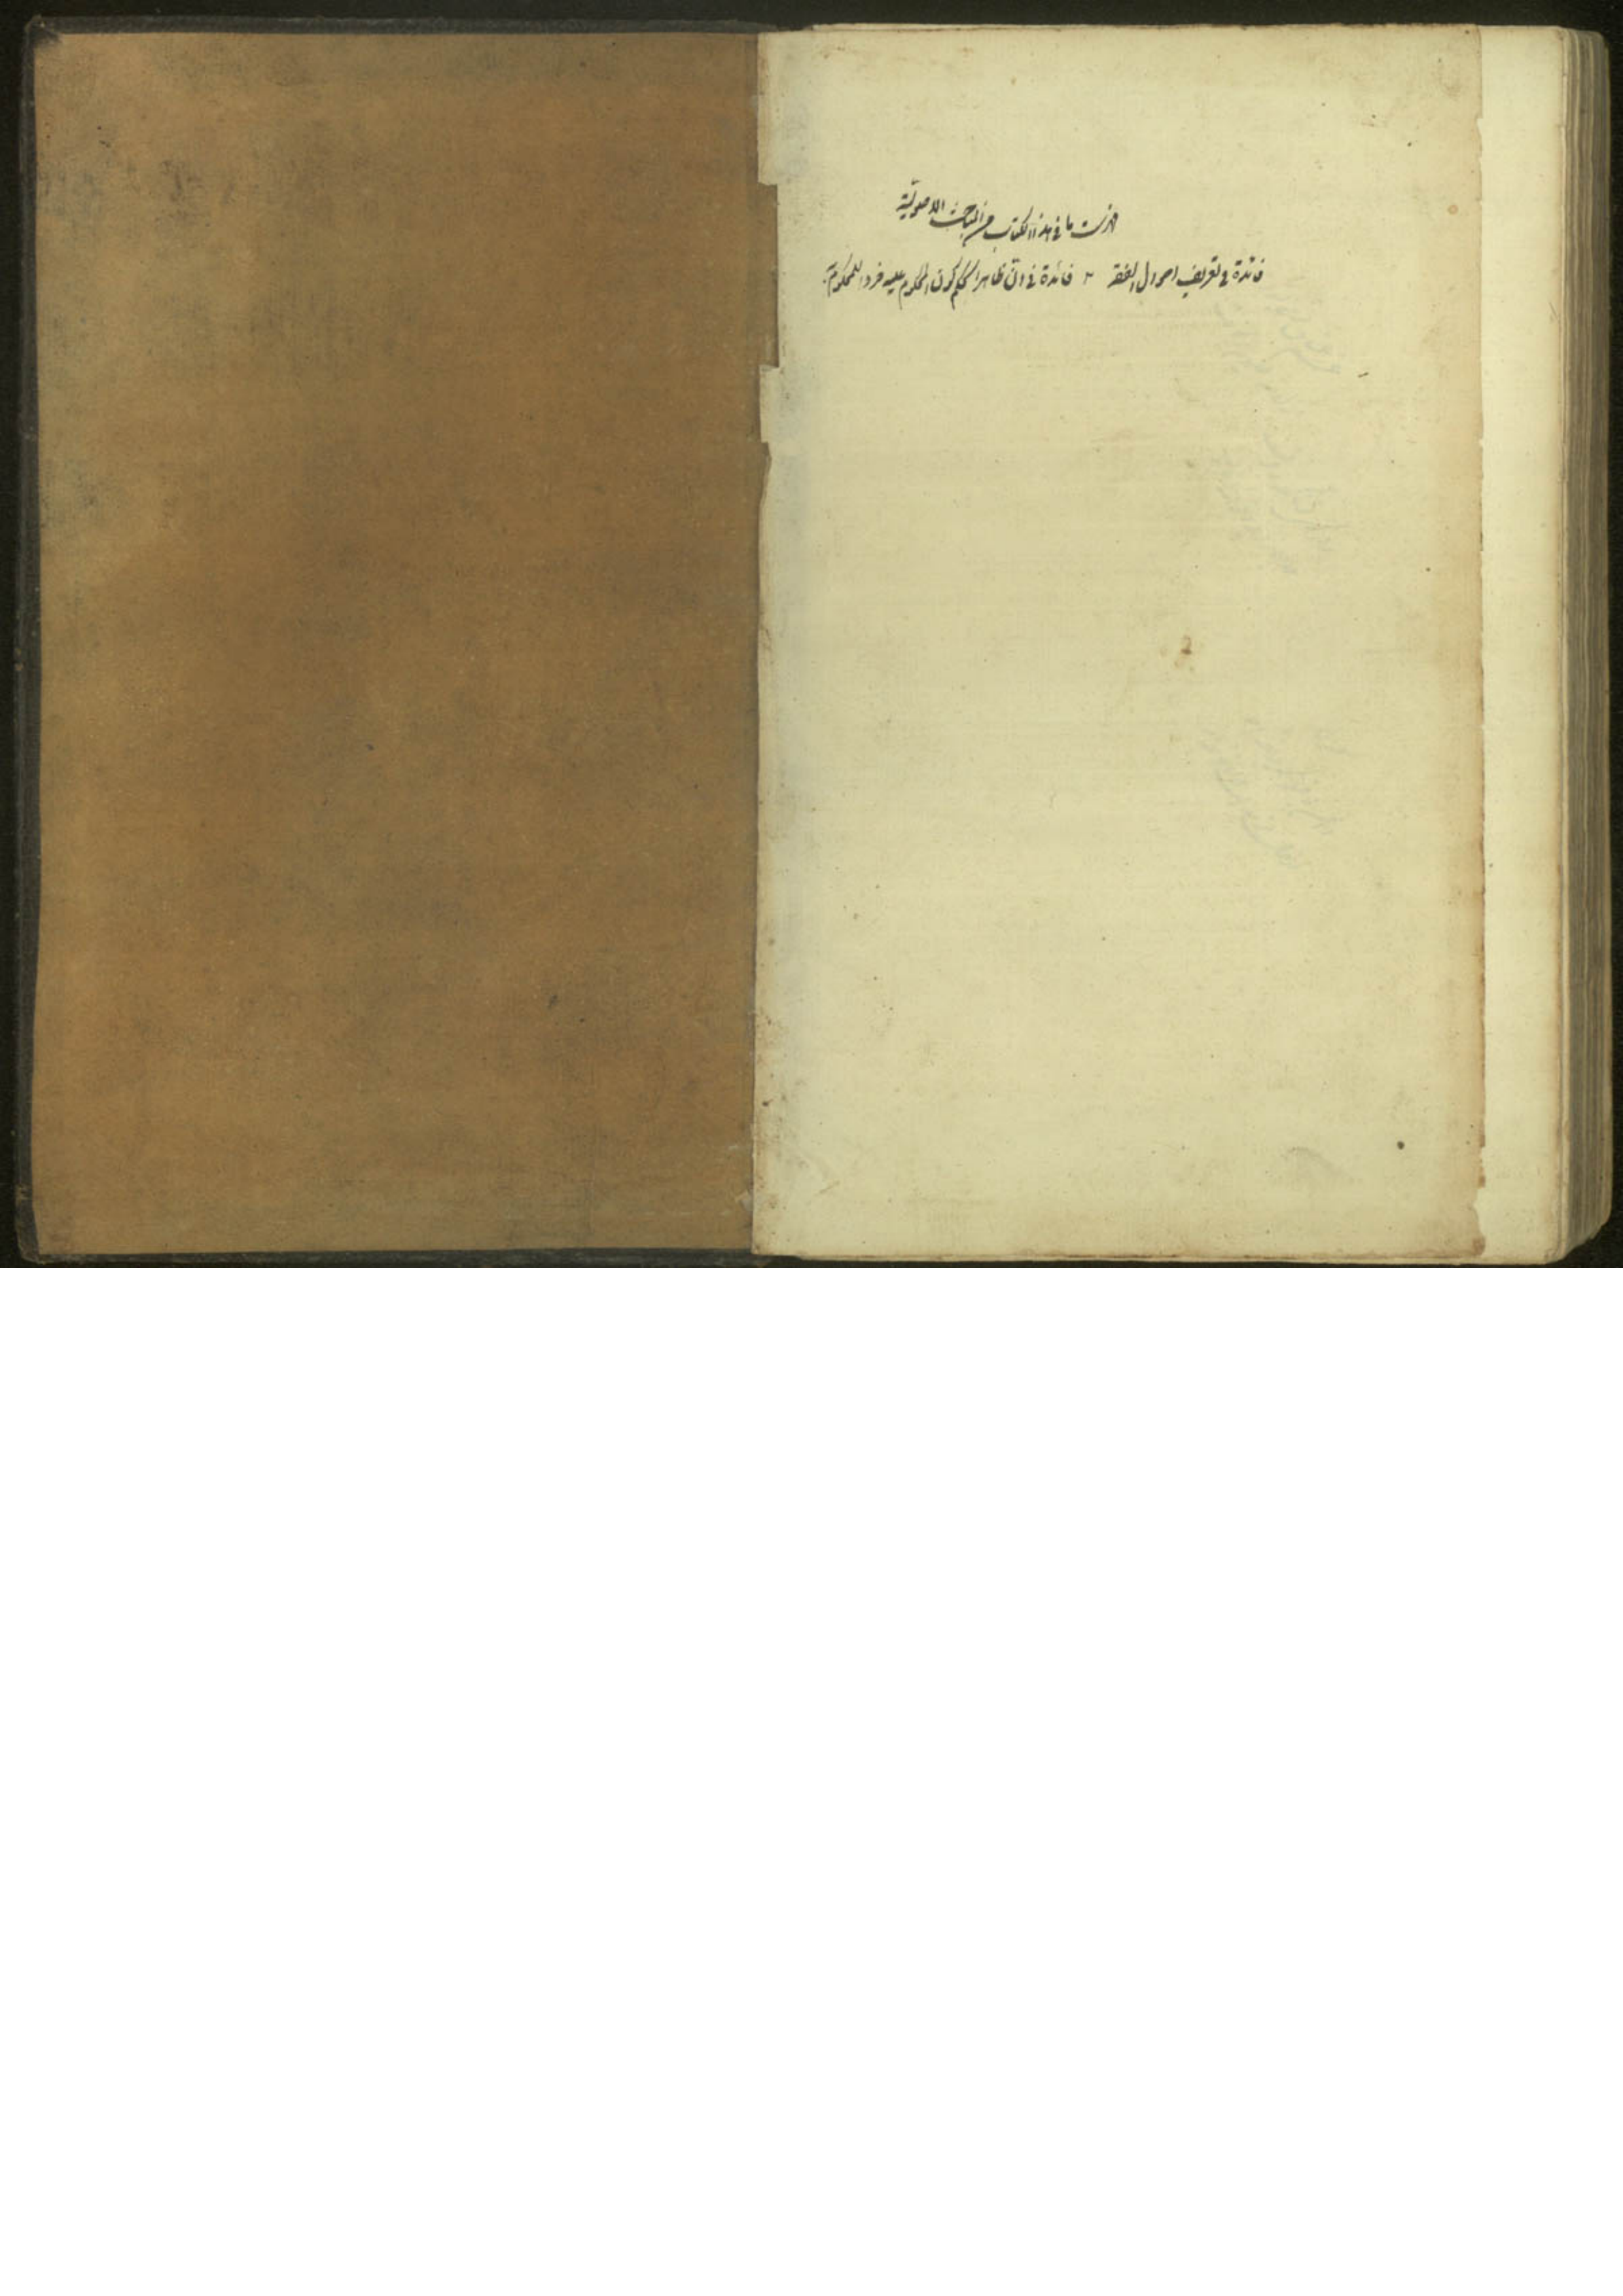 فهرست ما في هذا الكتاب من المباحث الاصولية
فائدة في تعريف اصول الفقه فائدة في ان ظاهر الحكم كون المحكوم عليه فردا للمحكوم به